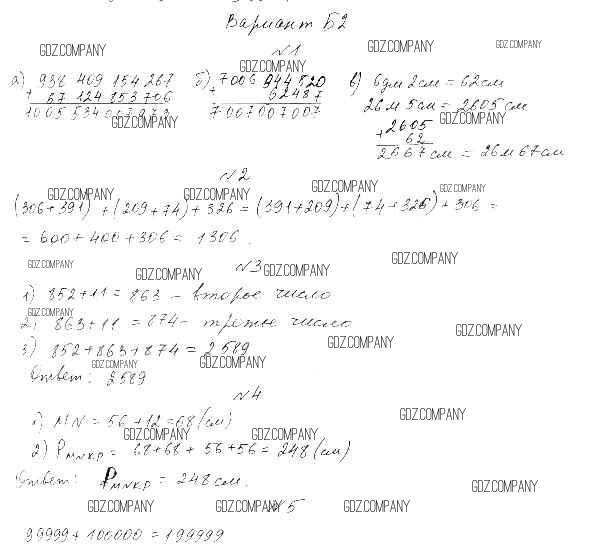 Вариант Б2
GDZ.COMPANY GDZ.COMPANY GDZ.COMPANY
№1
GDZ.COMPANY
а) 938 409 154 267 б) 7006 944 520 в) 6дм 2см = 62см
+ 67 124 853 706 + 62487 26м 5см = 2605 см
7007007007
GDZ.COMPANY GDZ.COMPANY
+2605
62
2667см = 26м 67см
№2
GDZ.COMPANY GDZ.COMPANY GDZ.COMPANY GDZ.COMPANY
(306+391) + (209+74) + 326 = (391+209)+(74+326)+306 =
= 600+400+306 = 1306.
GDZ.COMPANY GDZ.COMPANY GDZ.COMPANY GDZ.COMPANY
№3
1) 852+11 = 863 – второе число
GDZ.COMPANY
2) 863+11 = 874 – третье число
GDZ.COMPANY
3) 852+863+874 = 2589
GDZ.COMPANY GDZ.COMPANY GDZ.COMPANY
Ответ: 2589
№4
1) MN = 56+12=68(см)
GDZ.COMPANY GDZ.COMPANY GDZ.COMPANY
2) PMNKP = 68+68+56+56 = 248(см)
Ответ: PMNKP = 248см.
GDZ.COMPANY
GDZ.COMPANY GDZ.COMPANY №5 GDZ.COMPANY
99999+100000 = 199999